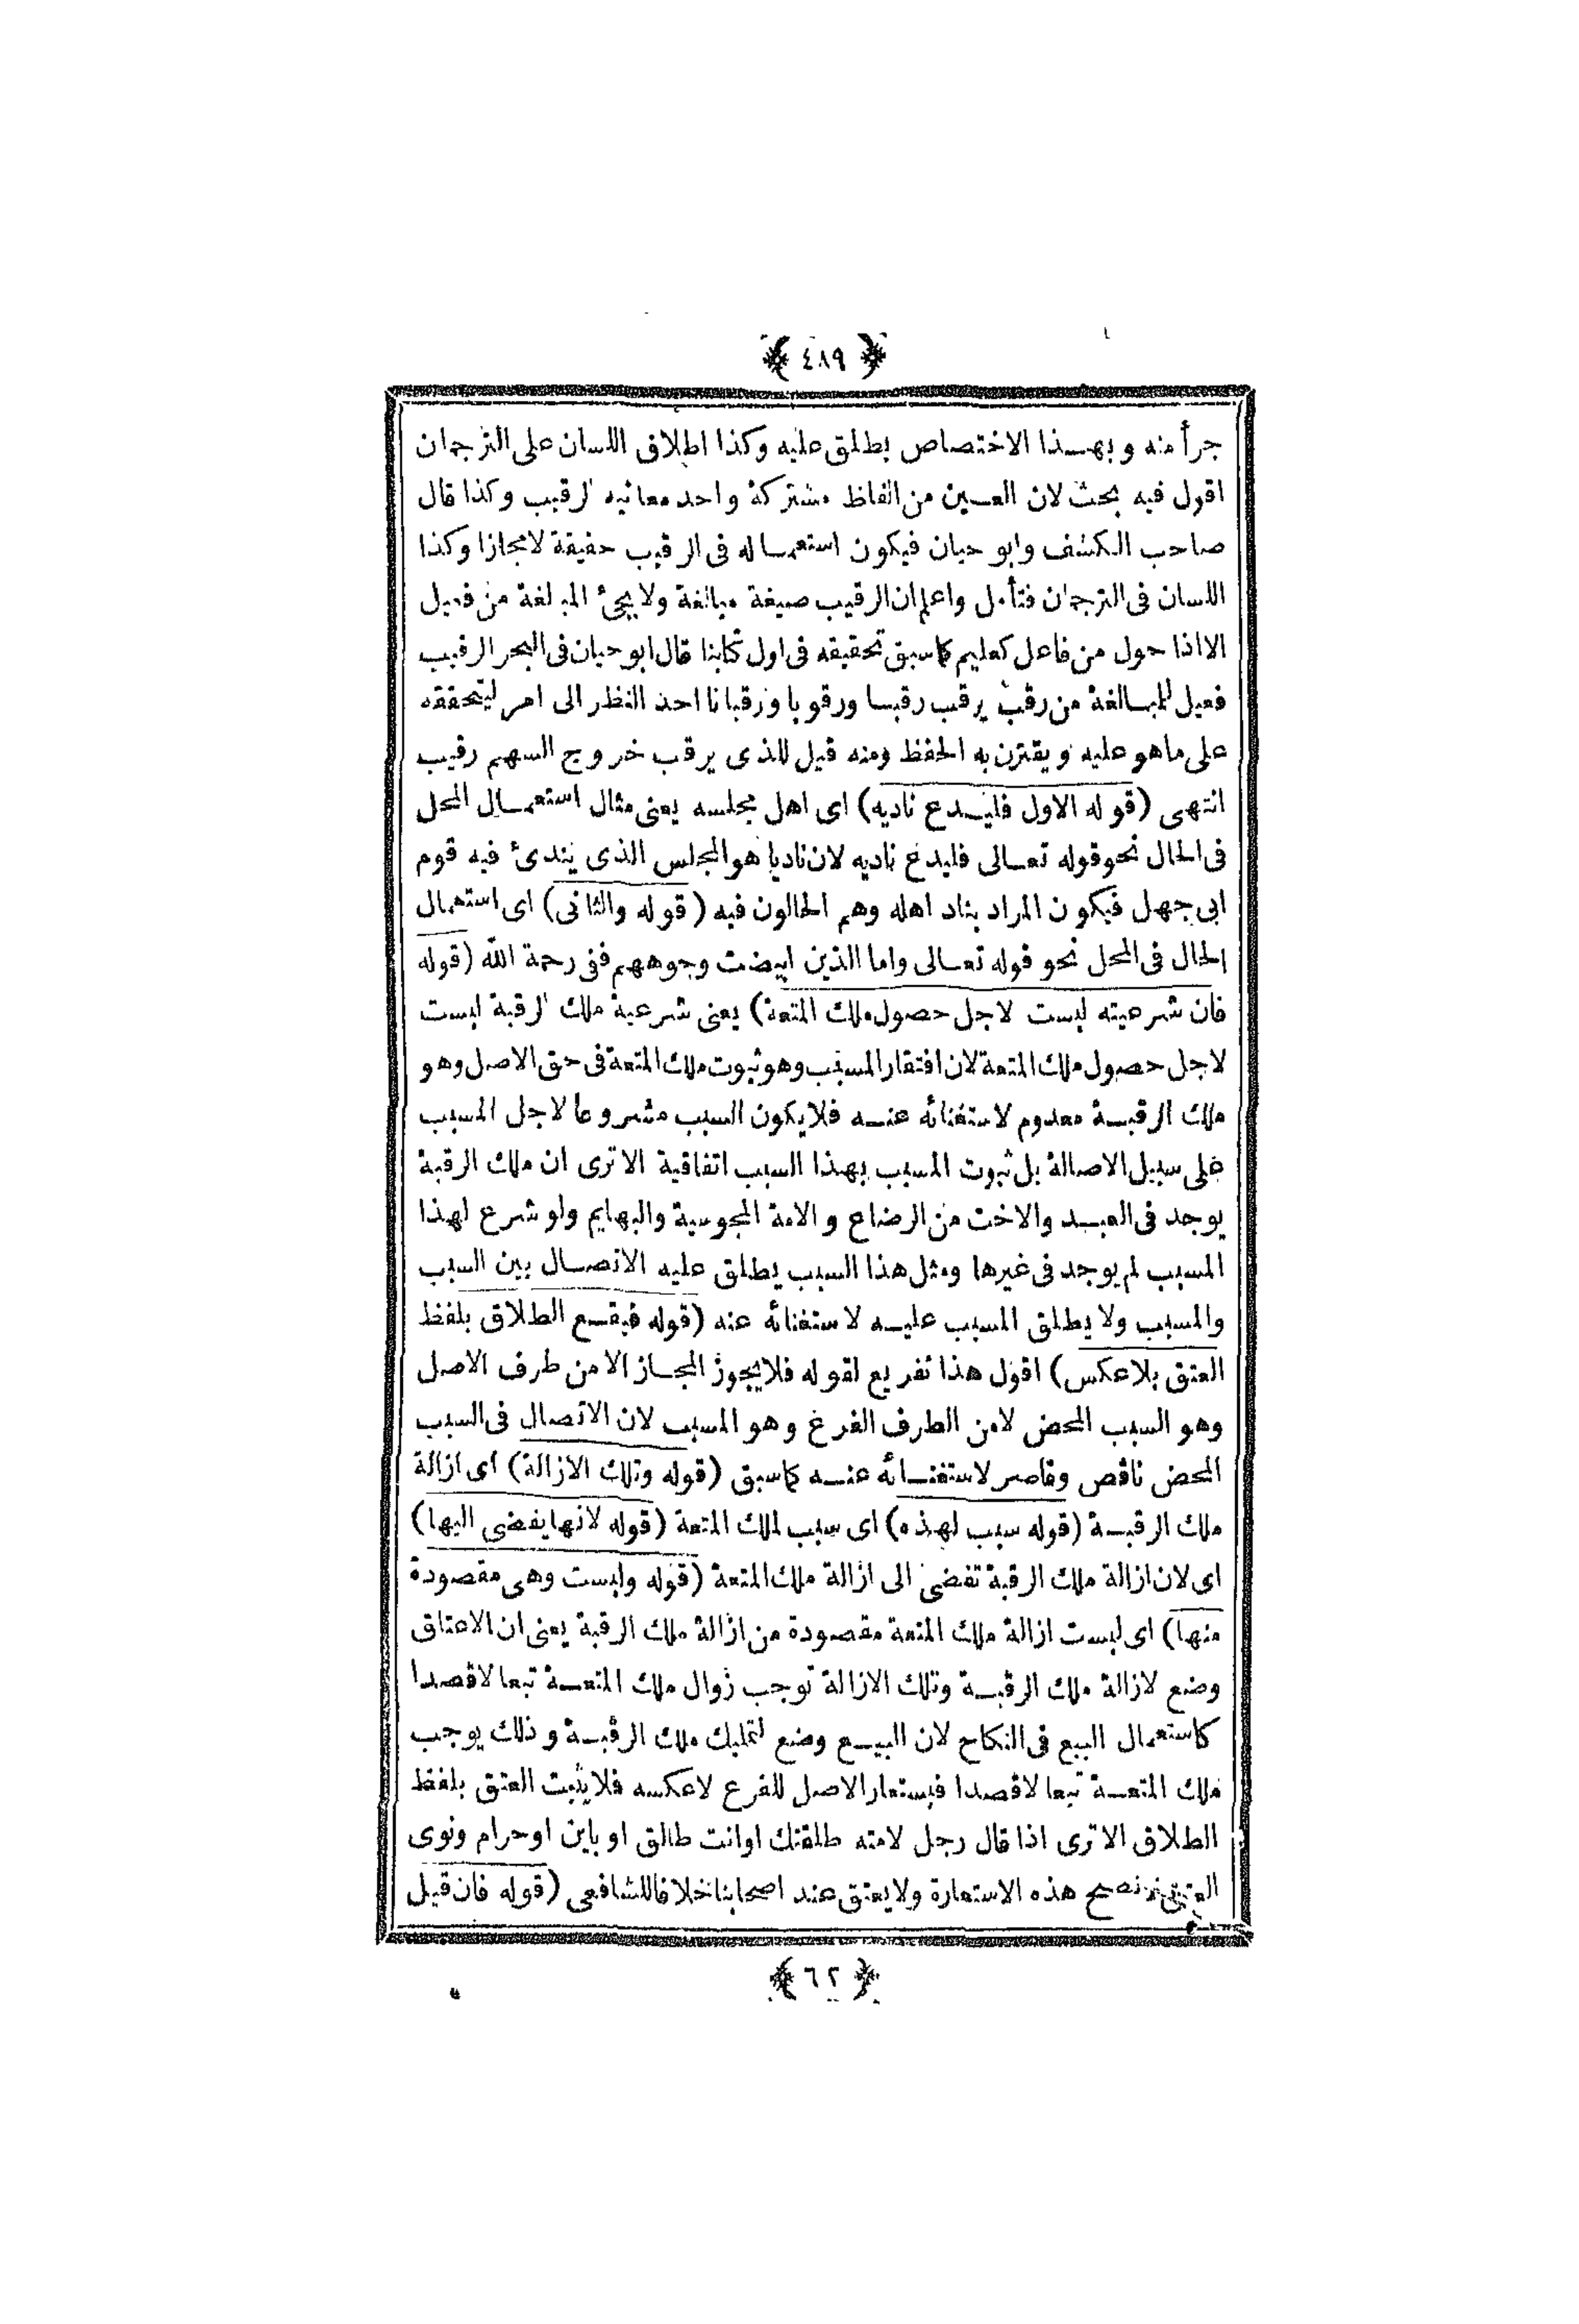 ﴿ ٤٨٩ ﴾
جزأ منه وبهذا الاختصاص يطلق عليه وكذا اطلاق اللسان على الترجمان
اقول فيه بحث لان العين من الفاظ مشتركة واحد معانيه الرقيب وكذا قال
صاحب الكشف وابو حيان فيكون استعماله فى الرقيب حقيقة لا مجازا وكذا
اللسان فى الترجمان فتأمل واعلم ان الرقيب صيغة مبالغة ولا يجئ المبالغة من فعيل
الا اذا حول من فاعل كعليم كما سبق تحقيقه فى اول كتابنا قال ابو حيان فى البحر الرقيب
فعيل للمبالغة من رقب يرقب رقبا ورقوبا ورقبانا احد النظر الى امر ليتحققه
على ما هو عليه ويقترن به الحفظ ومنه قيل للذى يرقب خروج السهم رقيب
انتهى (قوله الاول فليدع ناديه) اى اهل مجلسه يعنى مثال استعمال المحل
فى الحال نحو قوله تعالى فليدع ناديه لان ناديا هو المجلس الذى ينتدئ فيه قوم
ابى جهل فيكون المراد بناد اهله وهم الحالون فيه (قوله والثانى) اى استعمال
الحال فى المحل نحو قوله تعالى واما الذين ابيضت وجوههم ففى رحمة الله (قوله
فان شرعيته ليست لاجل حصول ملك المتعة) يعنى شرعية ملك الرقبة ليست
لاجل حصول ملك المتعة لان افتقار المسبب وهو ثبوت ملك المتعة فى حق الاصل وهو
ملك الرقبة معدوم لاستغنائه عنه فلا يكون السبب مشروعا لاجل المسبب
على سبيل الاصالة بل ثبوت المسبب بهذا السبب اتفاقية الا ترى ان ملك الرقبة
يوجد فى العبد والاخت من الرضاع والامة المجوسية والبهايم ولو شرع لهذا
المسبب لم يوجد فى غيرها ومثل هذا السبب يطلق عليه الاتصال بين السبب
والمسبب ولا يطلق المسبب عليه لاستغنائه عنه (قوله فيقع الطلاق بلفظ
العتق بلا عكس) اقول هذا تفريع لقوله فلا يجوز المجاز الا من طرف الاصل
وهو السبب المحض لا من الطرف الفرع وهو المسبب لان الاتصال فى السبب
المحض ناقص وقاصر لاستغنائه عنه كما سبق (قوله وتلك الازالة) اى ازالة
ملك الرقبة (قوله سبب لهذه) اى سبب لملك المتعة (قوله لانها يفضى اليها)
اى لان ازالة ملك الرقبة تفضى الى ازالة ملك المتعة (قوله وليست وهى مقصودة
منها) اى ليست ازالة ملك المتعة مقصودة من ازالة ملك الرقبة يعنى ان الاعتاق
وضع لازالة ملك الرقبة وتلك الازالة توجب زوال ملك المتعة تبعا لا قصدا
كاستعمال البيع فى النكاح لان البيع وضع لتمليك ملك الرقبة وذلك يوجب
ملك المتعة تبعا لا قصدا فيستعار الاصل للفرع لا عكسه فلا يثبت العتق بلفظ
الطلاق الا ترى اذا قال رجل لامته طلقتك او انت طالق او باين او حرام ونوى
العتق تصح هذه الاستعارة ولا يعتق عند اصحابنا خلافا للشافعى (قوله فان قيل
﴿ ٦٢ ﴾